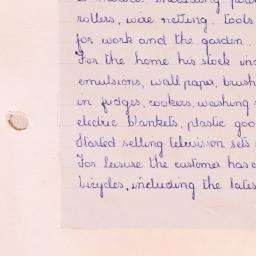 rollers, wire netting. Tools
for work and the garden.
For the home his stock inc
emulsions, wall paper, brush
in fridges, cookers, washing
electric blankets, plastic goo
Started selling television sets
For leisure the customer has a
bicycles, including the lates